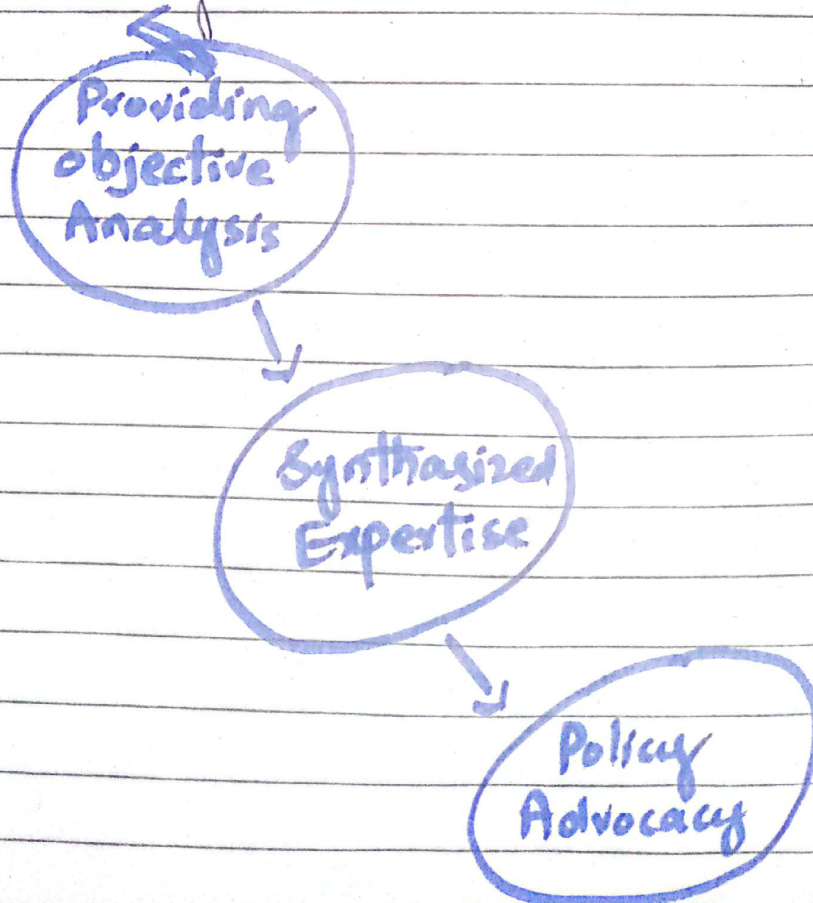 Providing
objective
Analysis
Synthasized
Expertise
Policy
Advocacy